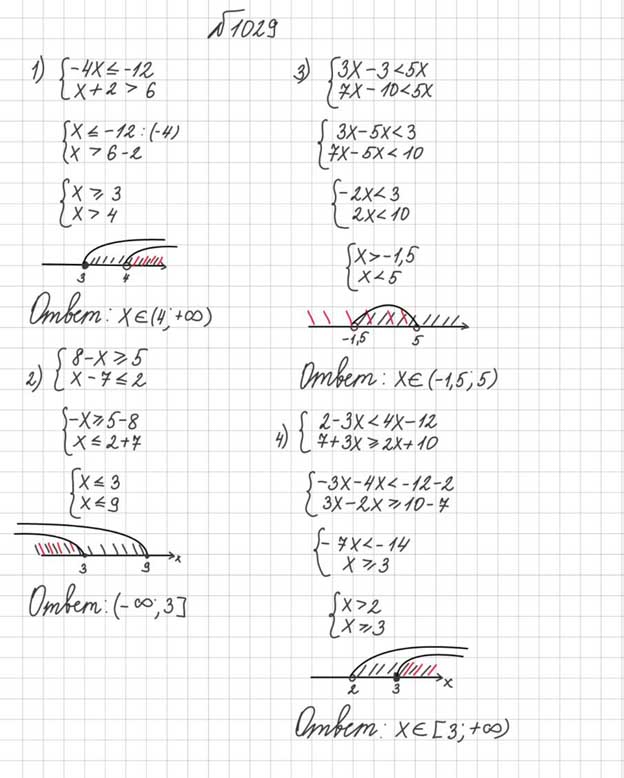 №1029
1) { -4x ≤ -12
x + 2 > 6
{ x ≤ -12 : (-4)
x > 6-2
{ x ⩾ 3
x > 4
3 4
Ответ: x∈(4; +∞)
2) { 8-x ⩾ 5
x - 7 ≤ 2
{ -x ⩾ 5-8
x ≤ 2+7
{ x ≤ 3
x ≤ 9
3 9 x
Ответ: (-∞; 3]
3) { 3x-3<5x
7x-10<5x
{ 3x-5x<3
7x-5x<10
{ -2x<3
2x<10
{ x>-1,5
x<5
-1,5 5
Ответ: x∈(-1,5; 5)
4) { 2-3x<4x-12
7+3x⩾2x+10
{ -3x-4x<-12-2
3x-2x⩾10-7
{ -7x<-14
x⩾3
{ x>2
x⩾3
2 3 x
Ответ: x∈[3; +∞)